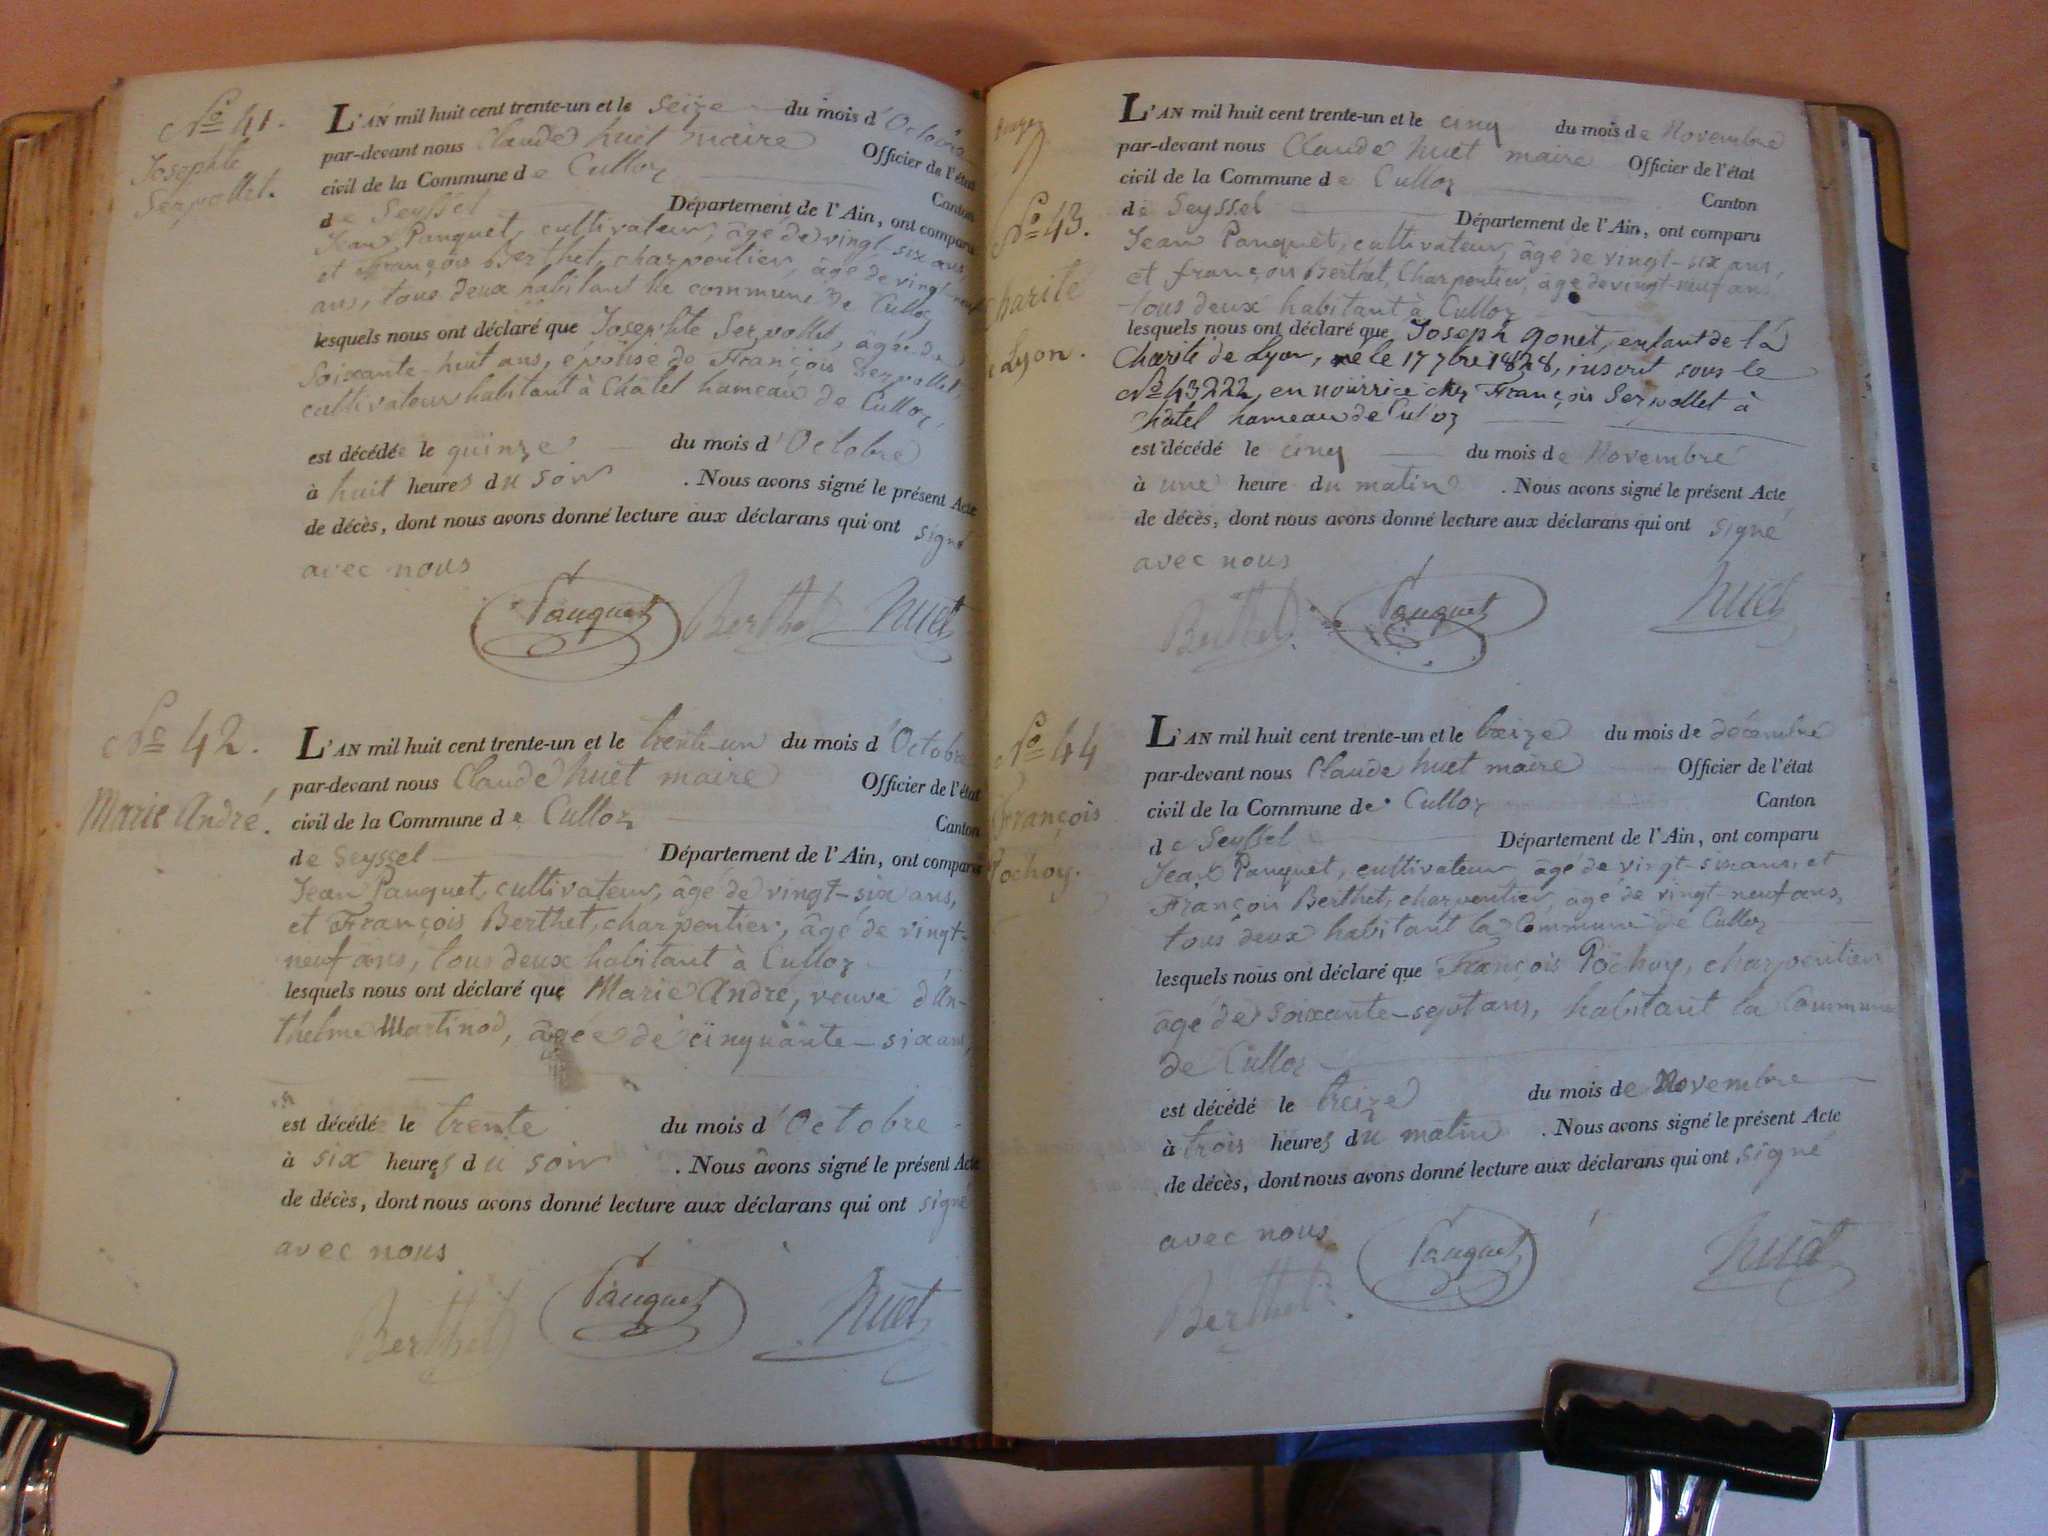 No 41.
Josephte
Servollet.
L'AN mil huit cent trente-un et le seize du mois d'Octobre
par-devant nous Claude huet maire Officier de l'état
civil de la Commune de Culloz Canton
de Seyssel Département de l'Ain, ont comparu
Jean Pauquet, cultivateur, âgé de vingt-six ans
et François Berthet, charpentier, âgé de vingt-neuf
ans, tous deux habitant la commune de Culloz
lesquels nous ont déclaré que Josephte Servollet, âgée de
soixante-huit ans, épouse de François Servollet,
cultivateur habitant à Châtel hameau de Culloz,
est décédée le quinze du mois d'Octobre
à huit heures du soir . Nous avons signé le présent Acte
de décès, dont nous avons donné lecture aux déclarans qui ont signé
avec nous
Pauquet Berthet huet
No 42.
Marie André.
L'AN mil huit cent trente-un et le trente-un du mois d'Octobre
par-devant nous Claude huet maire Officier de l'état
civil de la Commune de Culloz Canton
de Seyssel Département de l'Ain, ont comparu
Jean Pauquet, cultivateur, âgé de vingt-six ans,
et François Berthet, charpentier, âgé de vingt-
neuf ans, tous deux habitant à Culloz
lesquels nous ont déclaré que Marie André, veuve d'An-
thelme Martinod, âgée de cinquante-six ans,
est décédée le trente du mois d'Octobre
à six heures du soir . Nous avons signé le présent Acte
de décès, dont nous avons donné lecture aux déclarans qui ont signé
avec nous
Berthet Pauquet huet
No 43.
Charité
de Lyon.
L'AN mil huit cent trente-un et le cinq du mois de Novembre
par-devant nous Claude huet maire Officier de l'état
civil de la Commune de Culloz Canton
de Seyssel Département de l'Ain, ont comparu
Jean Pauquet, cultivateur, âgé de vingt-six ans,
et françois Berthet, Charpentier, âgé de vingt-neuf ans
tous deux habitant à Culloz
lesquels nous ont déclaré que Joseph gonet, enfant de la
Charité de Lyon, né le 17 7bre 1828, inscrit sous le
No 43222, en nourrice chez François Servollet à
Châtel hameau de Culoz
est décédé le cinq du mois de Novembre
à une heure du matin . Nous avons signé le présent Acte
de décès, dont nous avons donné lecture aux déclarans qui ont signé
avec nous
Berthet Pauquet huet
No 44
François
Pochoy.
L'AN mil huit cent trente-un et le treize du mois de décembre
par-devant nous Claude huet maire Officier de l'état
civil de la Commune de Culloz Canton
de Seyssel Département de l'Ain, ont comparu
Jean Pauquet, cultivateur âgé de vingt-six ans, et
François Berthet, charpentier, âgé de vingt-neuf ans,
tous deux habitant la Commune de Culloz
lesquels nous ont déclaré que François Pochoy, charpentier
âgé de soixante-sept ans, habitant la Commune
de Culloz
est décédé le treize du mois de Novembre
à trois heures du matin . Nous avons signé le présent Acte
de décès, dont nous avons donné lecture aux déclarans qui ont signé
avec nous
Berthet Pauquet huet